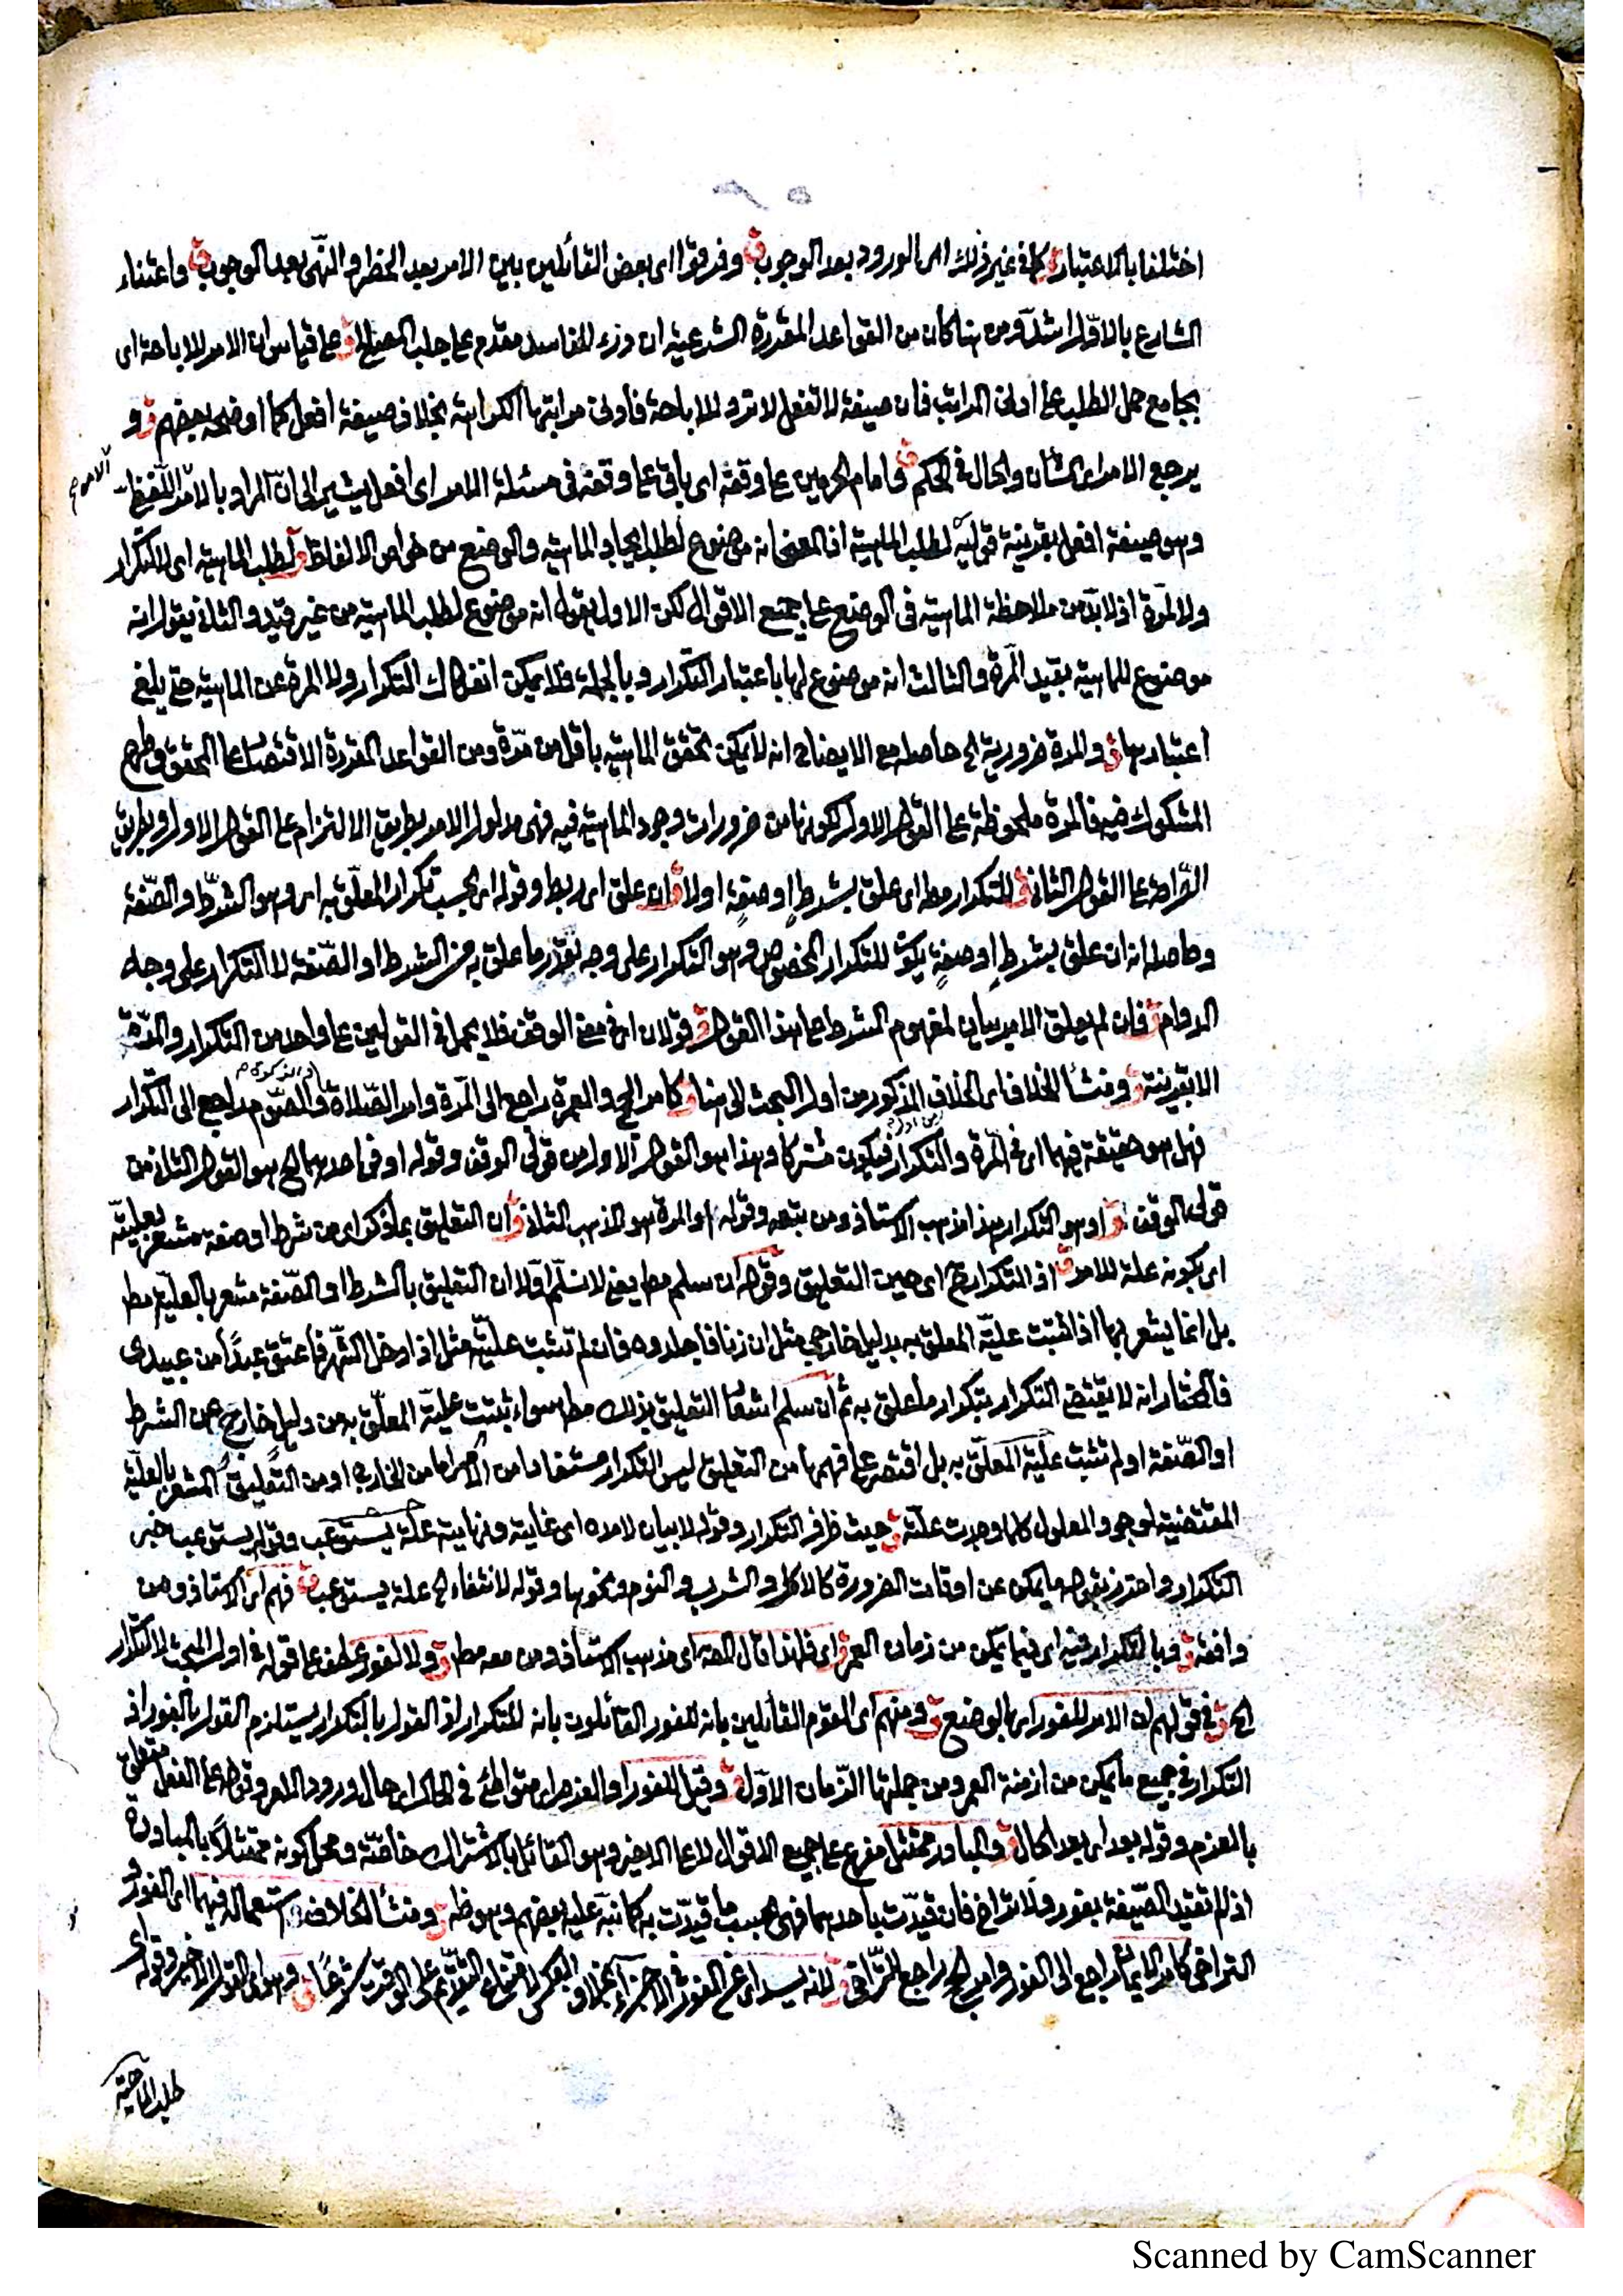 اختلفا بالاعتبار ق كما في غير ذلك اى الورود بعد الوجوب ق وفرقوا اى بعض القائلين بين الامر بعد الحظر والنهى بعد الوجوب ق واعتناء
الشارع بالاول اشد ومن هنا كان من القواعد المقررة الشرعية ان درء المفاسد مقدم على جلب المصالح ق على قياس ان الامر للاباحة اى
بجامع حمل الطلب على ادنى المراتب فان صيغة لا تفعل لا ترد للاباحة فأدنى مراتبها الكراهية بخلاف صيغة افعل كما اوضحه بعضهم ق و
يرجع الامر اى الشأن والحال في الحكم ق وامام الحرمين على وقفه اى باق على وقفه في مسئلة الامر اى افعل يشير الى ان المراد بالامر اللفظى
وهو صيغة افعل بقرينة قوله لطلب الماهية اذ المعنى انه موضوع لطلب ايجاد الماهية والوضع من خواص الالفاظ ق لطلب الماهية اى لا لتكرار
ولا لمرة اذ لا بد من ملاحظة الماهية في الوضع على جميع الاقوال لكن الاول يقول انه موضوع لطلب الماهية من غير قيد والثانى يقول انه
موضوع للماهية بقيد المرة والثالث انه موضوع لها باعتبار التكرار وبالجملة فلا يمكن انفكاك التكرار ولا المرة عن الماهية حتى يلغى
اعتبارها ق والمرة ضرورية الخ حاصله مع الايضاح انه لا يمكن تحقق الماهية باقل من مرة ومن القواعد المقررة الاقتصار على المحقق وطرح
المشكوك فيه فالمرة ملحوظة على القول الاول لكونها من ضرورات وجود الماهية فيه فهى مدلول الامر بطريق الالتزام على القول الاول وبطريق
الصراحة على القول الثانى ق للتكرار مط اى علق بشرط او صفة اولا ق ان علق اى ربط وقوله اى بحسب تكرار المعلق به اى وهو الشرط والصفة
وحاصله انه ان علق بشرط او صفة يكون للتكرار المخصوص وهو التكرار على وجه تقرر ما علق به من الشرط او الصفة لا التكرار على وجه
الدوام ق فان لم يعلق الامر بيان لمفهوم الشرط على هذا القول ق قولان اى في معنى الوقف فلا يحمل في القولين على واحد من التكرار والمرة
الا بقرينة ق ومنشأ الخلاف اى الخلاف المذكور من اول البحث الى هنا ق كامر الحج والعمرة راجع الى المرة وامر الصلاة والصوم راجع الى التكرار
فهل هو حقيقة فيهما اى في المرة والتكرار فيكون مشتركا وهذا هو القول الاول من قولى الوقف وقوله او في احدهما الخ هو القول الثانى من
قولى الوقف ق او هو التكرار هذا مذهب الاستاذ ومن تبعه وقوله او المرة هو المذهب الثانى ق ان التعليق بما ذكر اى من شرط او صفة مشعر بعليته
اى بكونه علة للامر ق اذ التكرار ح اى حين التعليق وقوله ان سلم مط يعنى لا نسلم اولا ان التعليق بالشرط او الصفة مشعر بالعلية مط
بل انما يشعر بها اذا ثبتت علية المعلق به بدليل خارجى مثل ان زنا فاجلدوه فان لم تثبت علية مثل اذا دخل الشهر فأعتق عبدا من عبيدى
فالمختار انه لا يقتضى التكرار بتكرار ما علق به ثم ان سلم اشعار التعليق بذلك مط سواء ثبتت علية المعلق به من دليل خارج عن الشرط
او الصفة او لم تثبت علية المعلق به بل اقتصر على فهمها من التعليق ليس التكرار مستفادا من الامر اما من الخارج او من التعليق المشعر بالعلية
المقتضية لوجود المعلول كلما وجدت علته ق حيث ظرف التكرار وقوله لا بيان لامده اى غايته ونهايته علة يستوعب وقوله يستوعب خبر
التكرار واحترز بقوله ما يمكن عن اوقات الضرورة كالاكل والشرب والنوم ونحوها وقوله لانتفاء الخ علة يستوعب ق فهم اى الاستاذ ومن
وافقه ق وبالتكرار فيه اى فيما يمكن من زمان العمر ق اى فلهذا قال المص اى مذهب الاستاذ ومن معه مط ق ولا لفور عطف على قوله في اول المبحث لا لتكرار
الخ ق في قولهم ان الامر للفور اى بالوضع ق ومنهم اى القوم القائلين بانه للفور القائلون بانه للتكرار اذ القول بالتكرار يستلزم القول بالفور اذ
التكرار في جميع ما يمكن من ازمنة العمر ومن جملتها الزمان الاول ق وقيل للفور او العزم اى متواطئ في الحال اى حال ورود الامر وقوله على الفعل متعلق
بالعزم وقوله بعد اى بعد الحال ق والمبادر ممتثل مفرع على جميع الاقوال لا على الاخير وهو القائل بالاشتراك خاصة ومحل كونه ممتثلا بالمبادرة
اذ لم تقيد الصيغة بفور ولا تراخ فان قيدت باحدهما فهى بحسب ما قيدت به كما نبه عليه بعضهم وهو ظ ق ومنشأ الخلاف استعماله فيهما اى الفور و
التراخى كامر الايمان راجع الى الفور وامر الحج راجع للتراخى ق لانه يسد اى عن الفور في الاجزاء بخلاف العكس لامتناع التقديم على الوقت شرعا ق وهو اى القول الاخير وقوله اى
طلب الماهية
Scanned by CamScanner